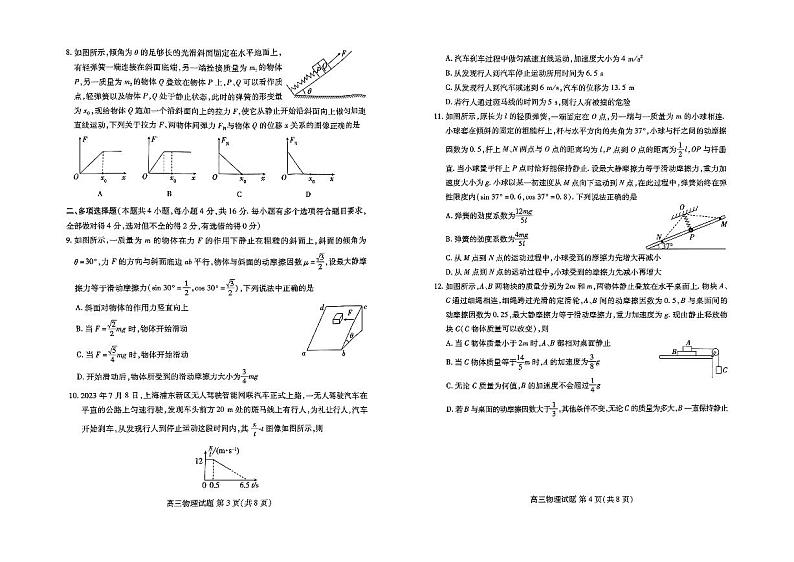 8. 如图所示,倾角为 θ 的足够长的光滑斜面固定在水平地面上,
有轻弹簧一端连接在斜面底端,另一端拴接质量为 m₁ 的物体
P,另一质量为 m₂ 的物体 Q 叠放在物体 P 上,P、Q 可以看作质
点,轻弹簧以及物体 P、Q 处于静止状态,此时的弹簧的形变量
为 x₀,现给物体 Q 施加一个沿斜面向上的拉力 F,使它从静止开始沿斜面向上做匀加速
直线运动,下列关于拉力 F、两物体间弹力 F_N 与物体 Q 的位移 x 关系的图像正确的是
F
Q
P
θ
F
O
x₀
x
F
O
x₀
x
F_N
O
x₀
x
F_N
O
x₀
x
A
B
C
D
二、多项选择题(本题共 4 小题,每小题 4 分,共 16 分. 每小题有多个选项符合题目要求,
全部做对得 4 分,选对但不全的得 2 分,有选错的得 0 分)
9. 如图所示,一质量为 m 的物体在力 F 的作用下静止在粗糙的斜面上,斜面的倾角为
θ=30°,力 F 的方向与斜面底边 ab 平行,物体与斜面的动摩擦因数 μ=√3/2,设最大静摩
擦力等于滑动摩擦力(sin 30°=1/2,cos 30°=√3/2),下列说法中正确的是
A. 斜面对物体的作用力竖直向上
B. 当 F=√2/2 mg 时,物体开始滑动
C. 当 F=√5/4 mg 时,物体开始滑动
D. 开始滑动后,物体所受到的滑动摩擦力大小为 3/4 mg
d
c
F
θ
a
b
10. 2023 年 7 月 8 日,上海浦东新区无人驾驶智能网联汽车正式上路,一无人驾驶汽车在
平直的公路上匀速行驶,发现车头前方 20 m 处的斑马线上有行人,为礼让行人,汽车
开始刹车,从发现行人到停止运动这段时间内,其 x/t -t 图像如图所示,则
x/t /(m·s⁻¹)
12
0 0.5 6.5 t/s
高三物理试题 第 3 页(共 8 页)
A. 汽车刹车过程中做匀减速直线运动,加速度大小为 4 m/s²
B. 从发现行人到汽车停止运动所用时间为 6.5 s
C. 从发现行人到汽车减速到 6 m/s,汽车的位移为 13.5 m
D. 若行人通过斑马线的时间为 5 s,则行人有被撞的危险
11. 如图所示,原长为 l 的轻质弹簧,一端固定在 O 点,另一端与一质量为 m 的小球相连.
小球套在倾斜的固定的粗糙杆上,杆与水平方向的夹角为 37°,小球与杆之间的动摩擦
因数为 0.5,杆上 M、N 两点与 O 点的距离均为 l,P 点到 O 点的距离为 1/2 l,OP 与杆垂
直. 当小球置于杆上 P 点时恰好能保持静止. 设最大静摩擦力等于滑动摩擦力,重力加
速度大小为 g. 小球以某一初速度从 M 点向下运动到 N 点,在此过程中,弹簧始终在弹
性限度内(sin 37°=0.6,cos 37°=0.8). 下列说法正确的是
A. 弹簧的劲度系数为 12mg/5l
B. 弹簧的劲度系数为 4mg/5l
C. 从 M 点到 N 点的运动过程中,小球受到的摩擦力先增大再减小
D. 从 M 点到 N 点的运动过程中,小球受到的摩擦力先减小再增大
O
M
P
N
37°
12. 如图所示,A、B 两物块的质量分别为 2m 和 m,两物体静止叠放在水平桌面上. 物块 A、
C 通过细绳相连,细绳跨过光滑的定滑轮,A、B 间的动摩擦因数为 0.5,B 与桌面间的
动摩擦因数为 0.25,最大静摩擦力等于滑动摩擦力,重力加速度为 g. 现由静止释放物
块 C(C 物体质量可以改变),则
A. 当 C 物体质量小于 2m 时,A、B 都相对桌面静止
B. 当 C 物体质量等于 14/5 m 时,A 的加速度为 3/8 g
C. 无论 C 质量为何值,B 的加速度不会超过 1/4 g
D. 若 B 与桌面的动摩擦因数大于 1/3,其他条件不变,无论 C 的质量为多大,B 一直保持静止
A
B
C
高三物理试题 第 4 页(共 8 页)